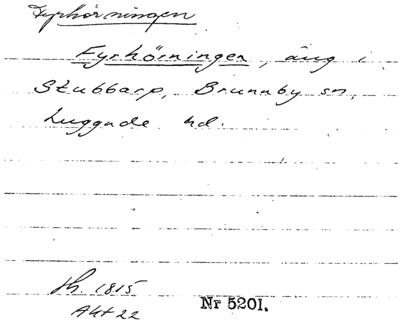 Fyrhörningen
Fyrhörningen, äng i
Stubbarp, Brunnby sn,
Luggude hd.
Sk. 1815
Akt 22
Nr 5201.